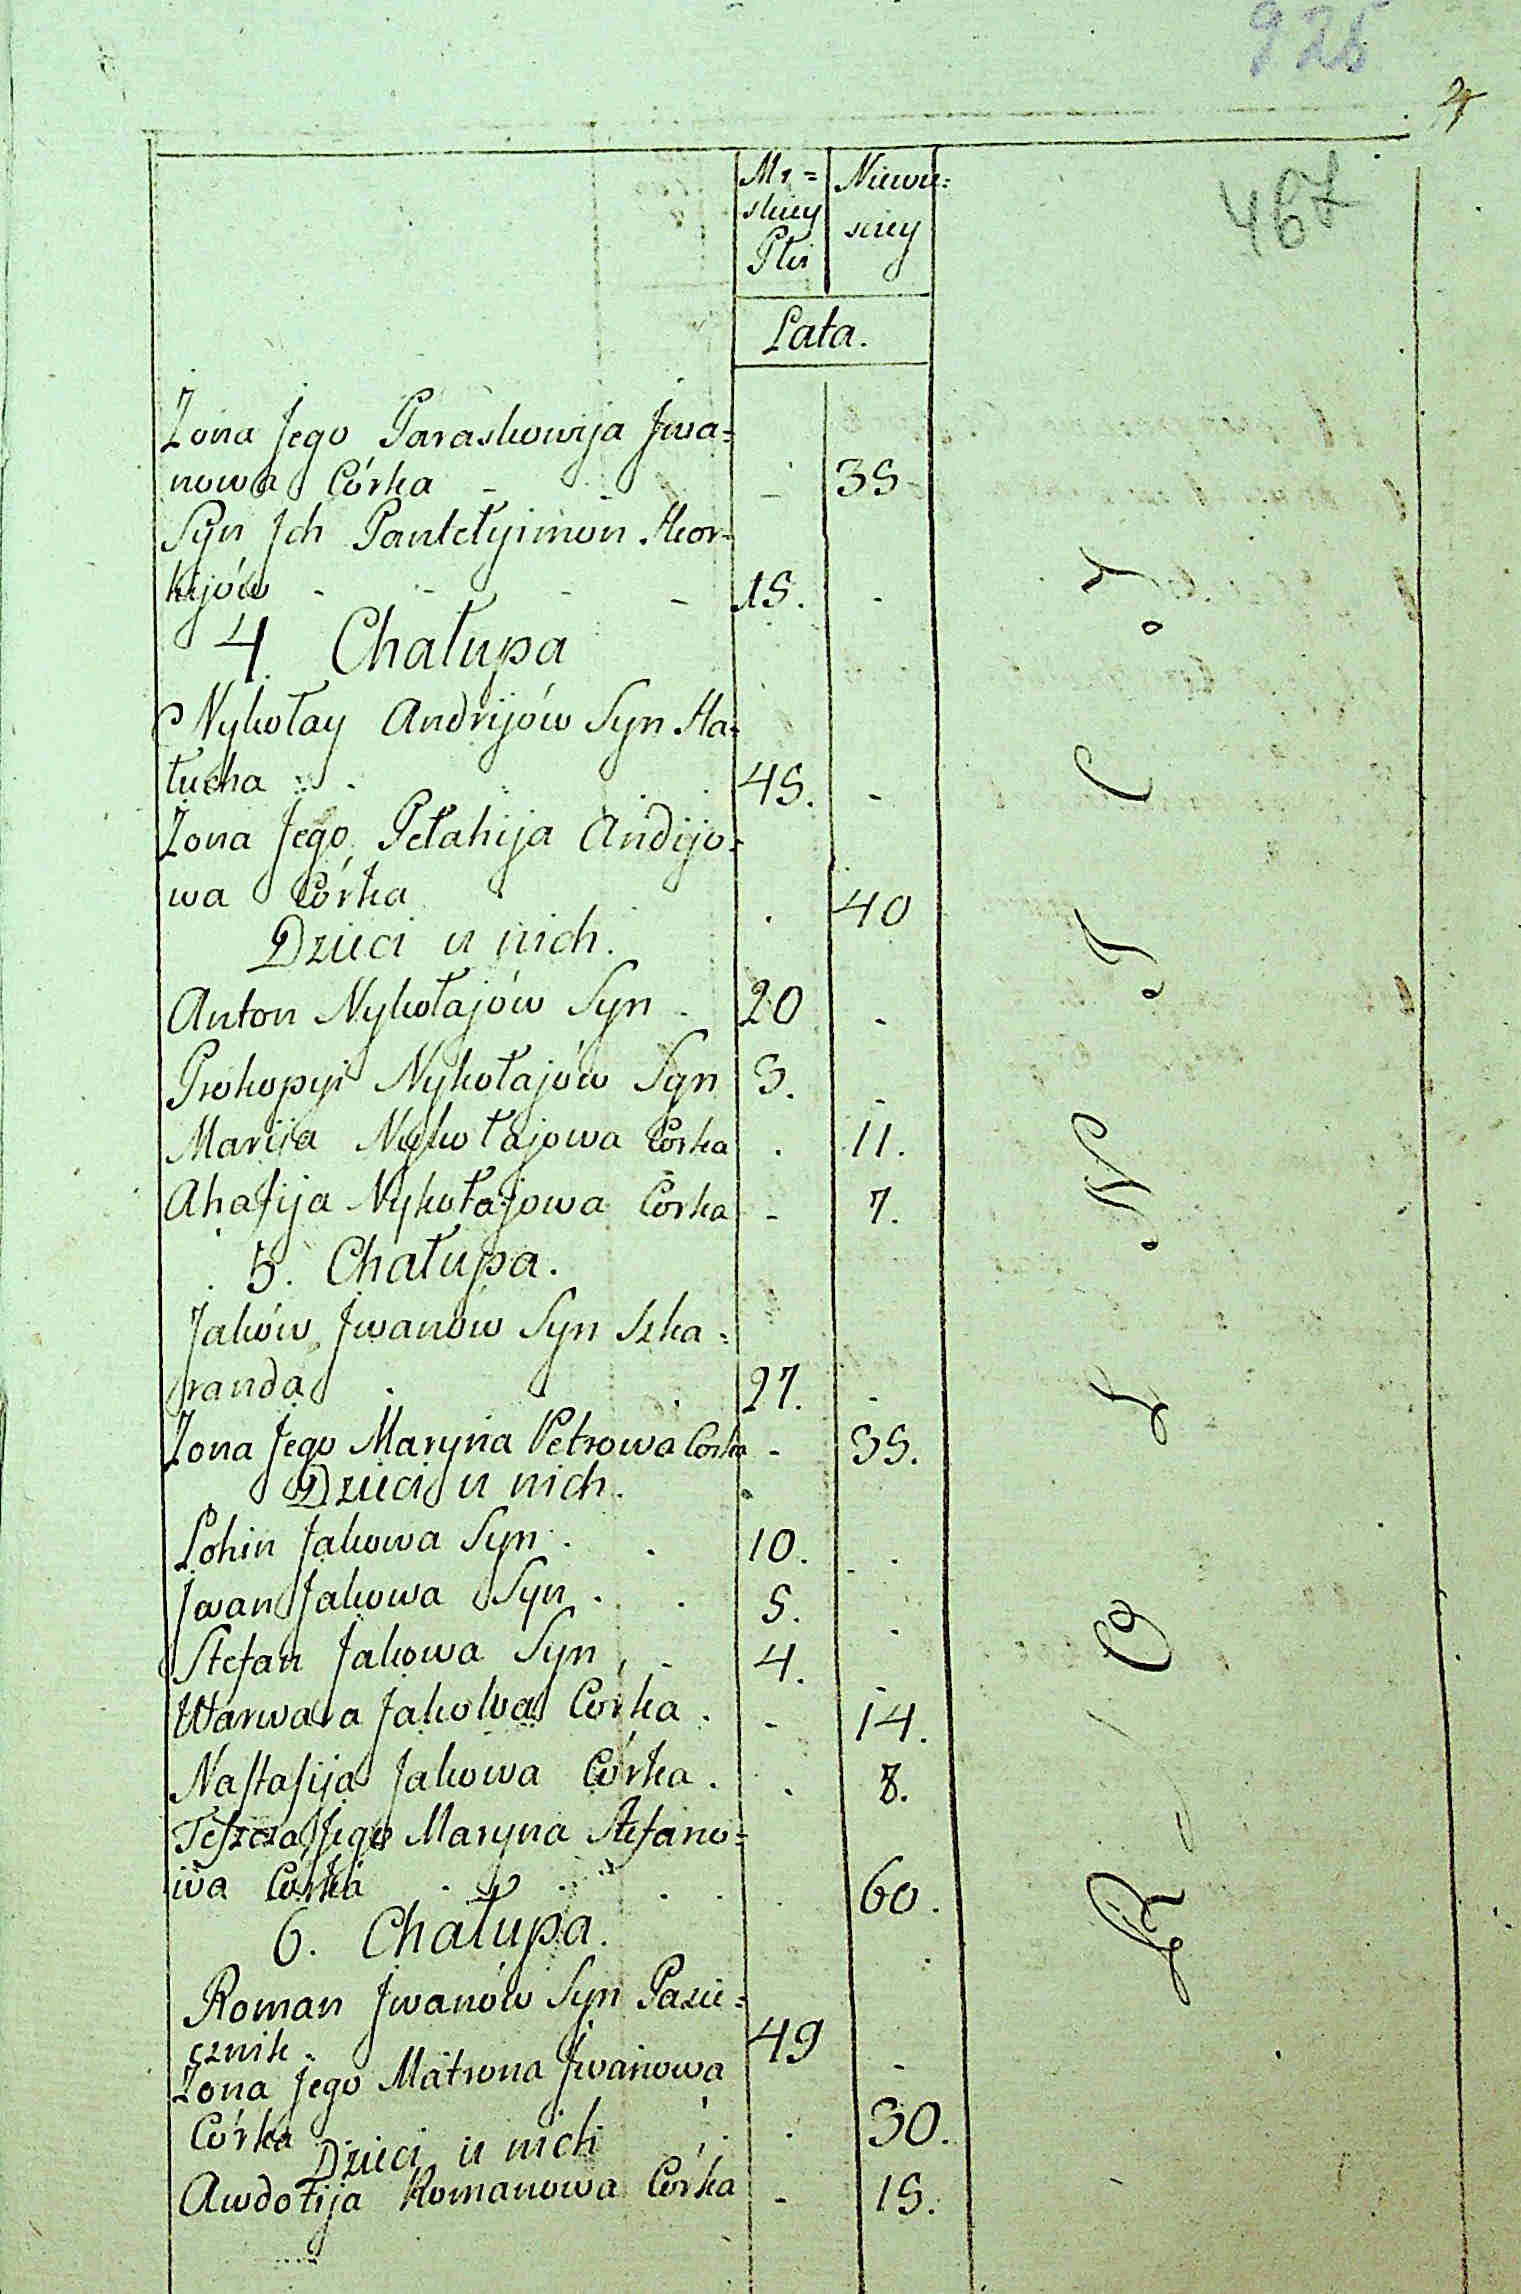 925
4
467
Mę=
skiey
Płci
Niewie=
sciey
Lata.
Żona Jego Paraskowija Jwa=
nowa Córka - - - 35
Syn Jch Pantełyimon Heor=
hijów - - - - 15. -
4. Chałupa
Nykołay Andrijów Syn Ha=
łucha . . 45. -
Żona Jego Pełahija Andijo=
wa Córka . 40
Dzieci u nich.
Anton Nykołajów Syn . 20 -
Prokopyi Nykołajów Syn 3. -
Marija Nykołajowa Córka . 11.
Ahafija Nykołajowa Córka - 7.
5. Chałupa.
Jaków Jwanów Syn Szka=
randa . . 27. -
Żona Jego Maryna Petrowa Corka - 35.
Dzieci u nich.
Łohin Jakowa Syn . . 10. .
Jwan Jakowa Syn . . 5. .
Stefan Jakowa Syn . - 4. -
Warwara Jakowa Córka . - 14.
Nastasija Jakowa Córka . . 8.
Teszcza Jego Maryna Stefano=
wa Córka . . . . 60.
6. Chałupa.
Roman Jwanów Syn Pasie=
cznik . 49 -
Żona Jego Matrona Jwanowa
Córka . . . 30.
Dzieci u nich
Awdotija Romanowa Córka - 15.